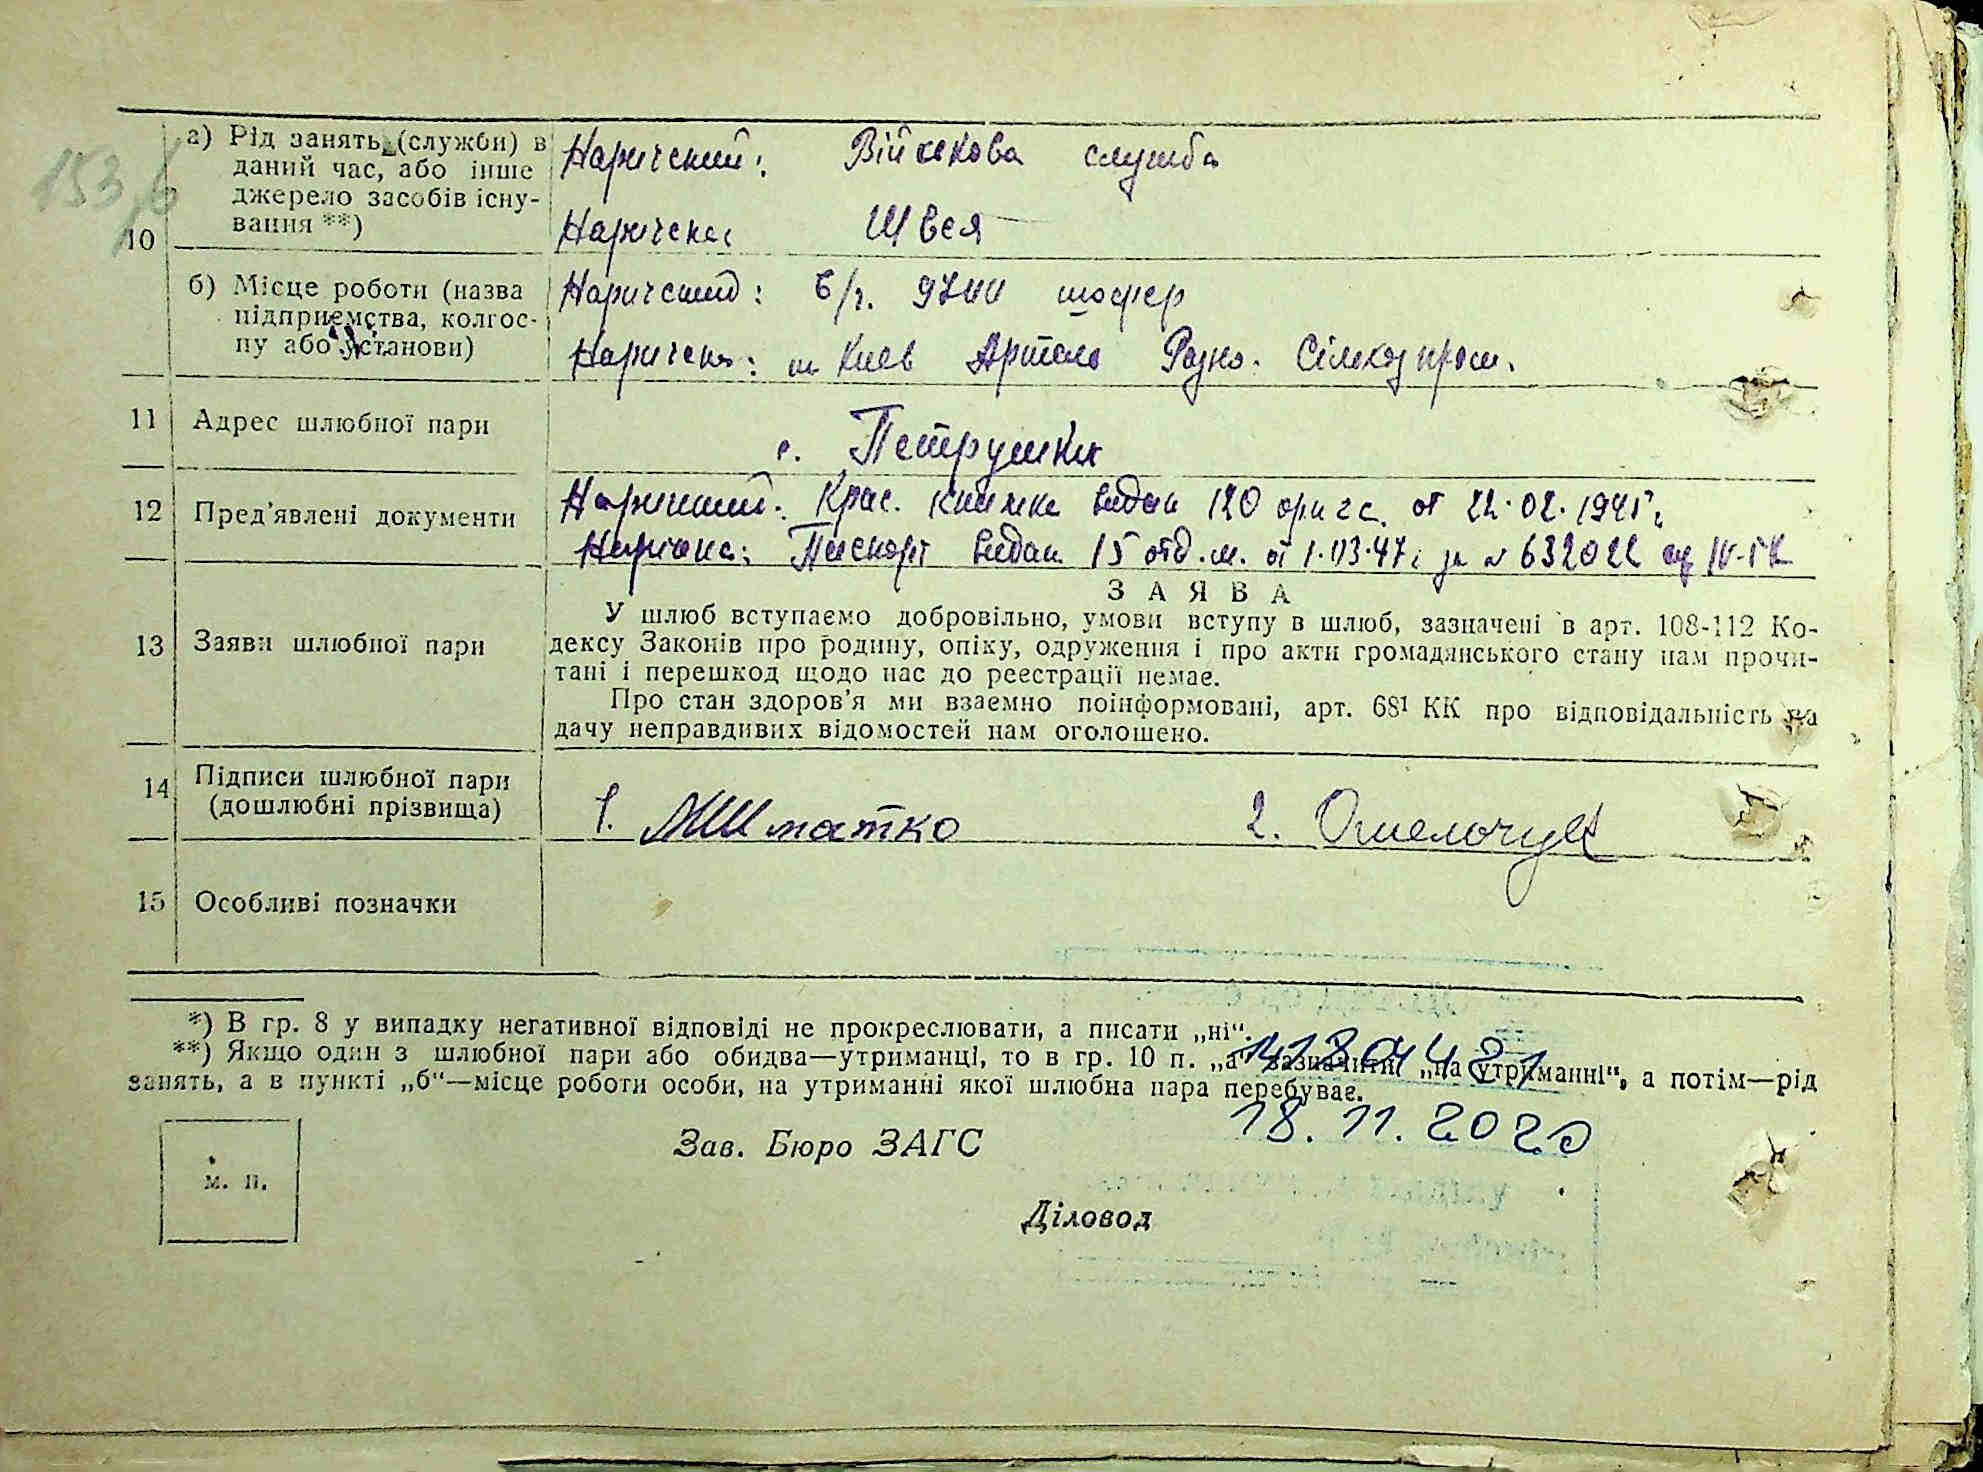 153
10
а) Рід занять (служби) в
даний час, або інше
джерело засобів існу-
вання **)
Наричений: Війскова служба
Наричена Швея
б) Місце роботи (назва
підприємства, колгос-
пу або установи)
Наричений: в/ч. шофер
Наричена: м Киев Артель
11 Адрес шлюбної пари
с. Петрушки
12 Пред'явлені документи
Наричений: Крас. книжка видан 120 от 22.02.1945г.
Наричена: Паспорт видан 15 отд. м. от 1.03.47г за № 632022
13 Заяви шлюбної пари
ЗАЯВА
У шлюб вступаємо добровільно, умови вступу в шлюб, зазначені в арт. 108-112 Ко-
дексу Законів про родину, опіку, одруження і про акти громадянського стану нам прочи-
тані і перешкод щодо нас до реестрації немає.
Про стан здоров'я ми взаємно поінформовані, арт. 68¹ КК про відповідальність за
дачу неправдивих відомостей нам оголошено.
14 Підписи шлюбної пари
(дошлюбні прізвища)
1. 2. Омельчук
15 Особливі позначки
*) В гр. 8 у випадку негативної відповіді не прокреслювати, а писати „ні“.
**) Якщо один з шлюбної пари або обидва—утриманці, то в гр. 10 п. „а“ зазначити „на утриманні“, а потім—рід
занять, а в пункті „б“—місце роботи особи, на утриманні якої шлюбна пара перебуває.
18.11.2020
Зав. Бюро ЗАГС
м. п.
Діловод